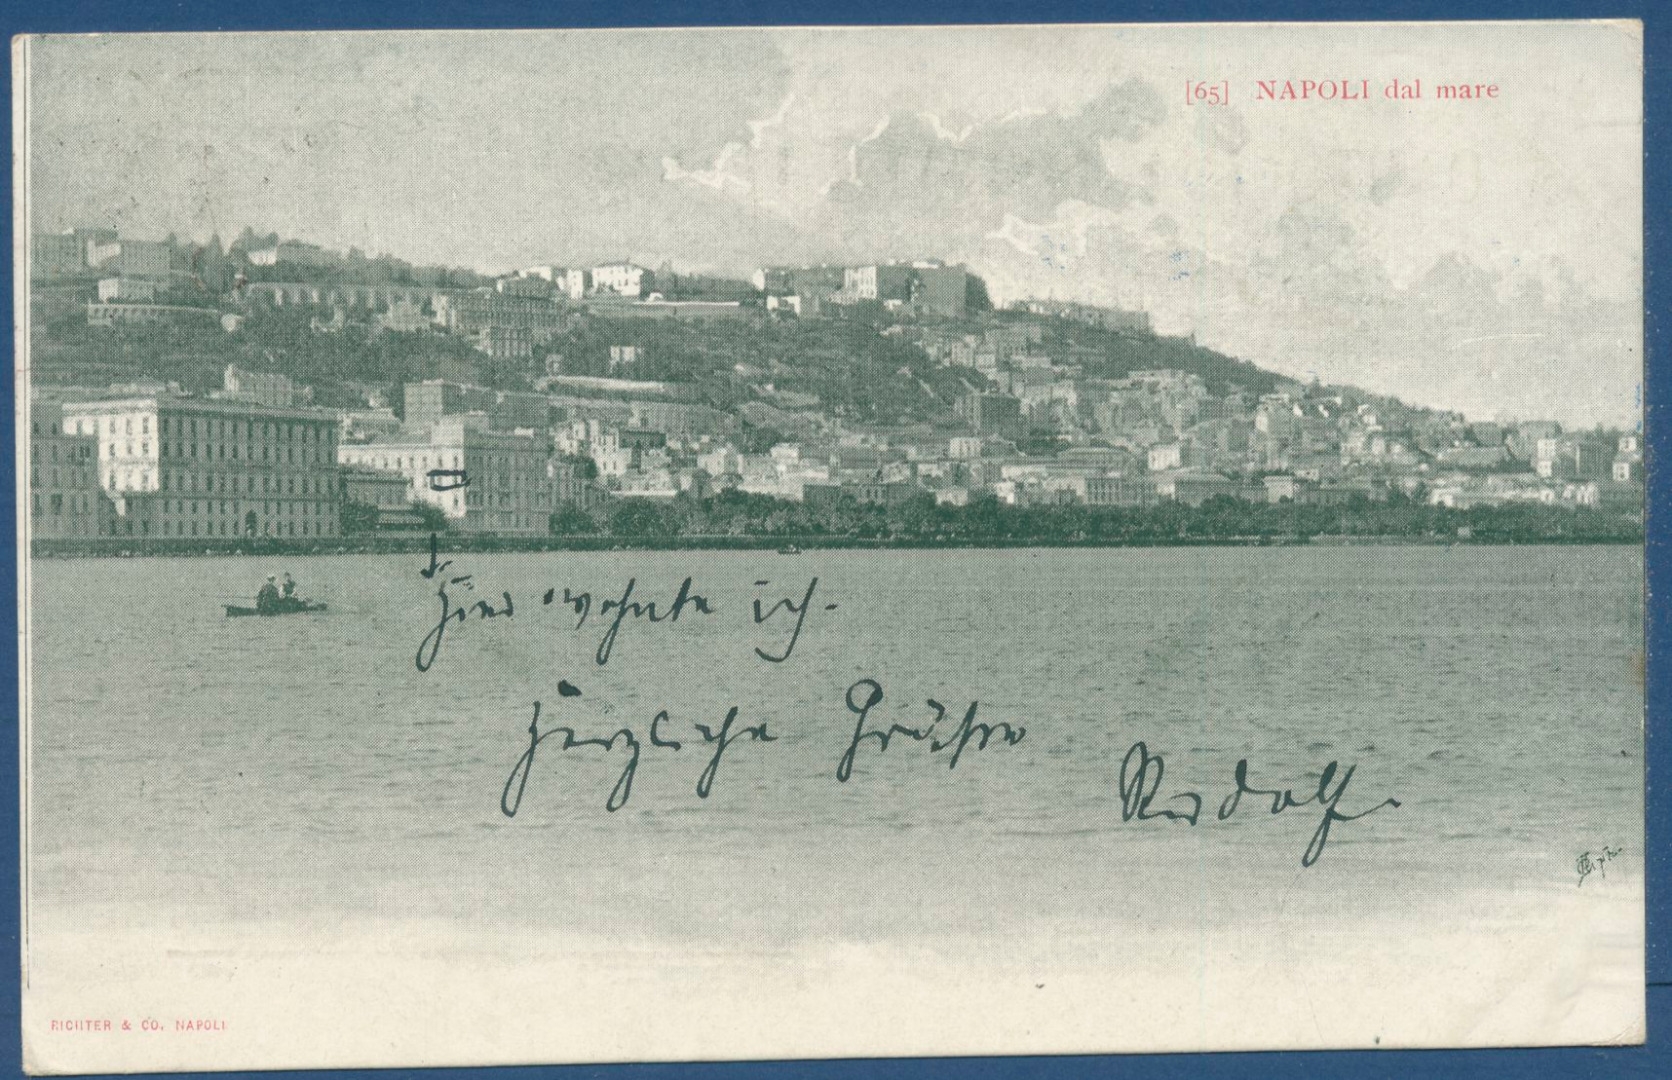 [65] NAPOLI dal mare
Hier wohnte ich.
Herzliche Grüße
Rudolf.
RICHTER & CO, NAPOLI